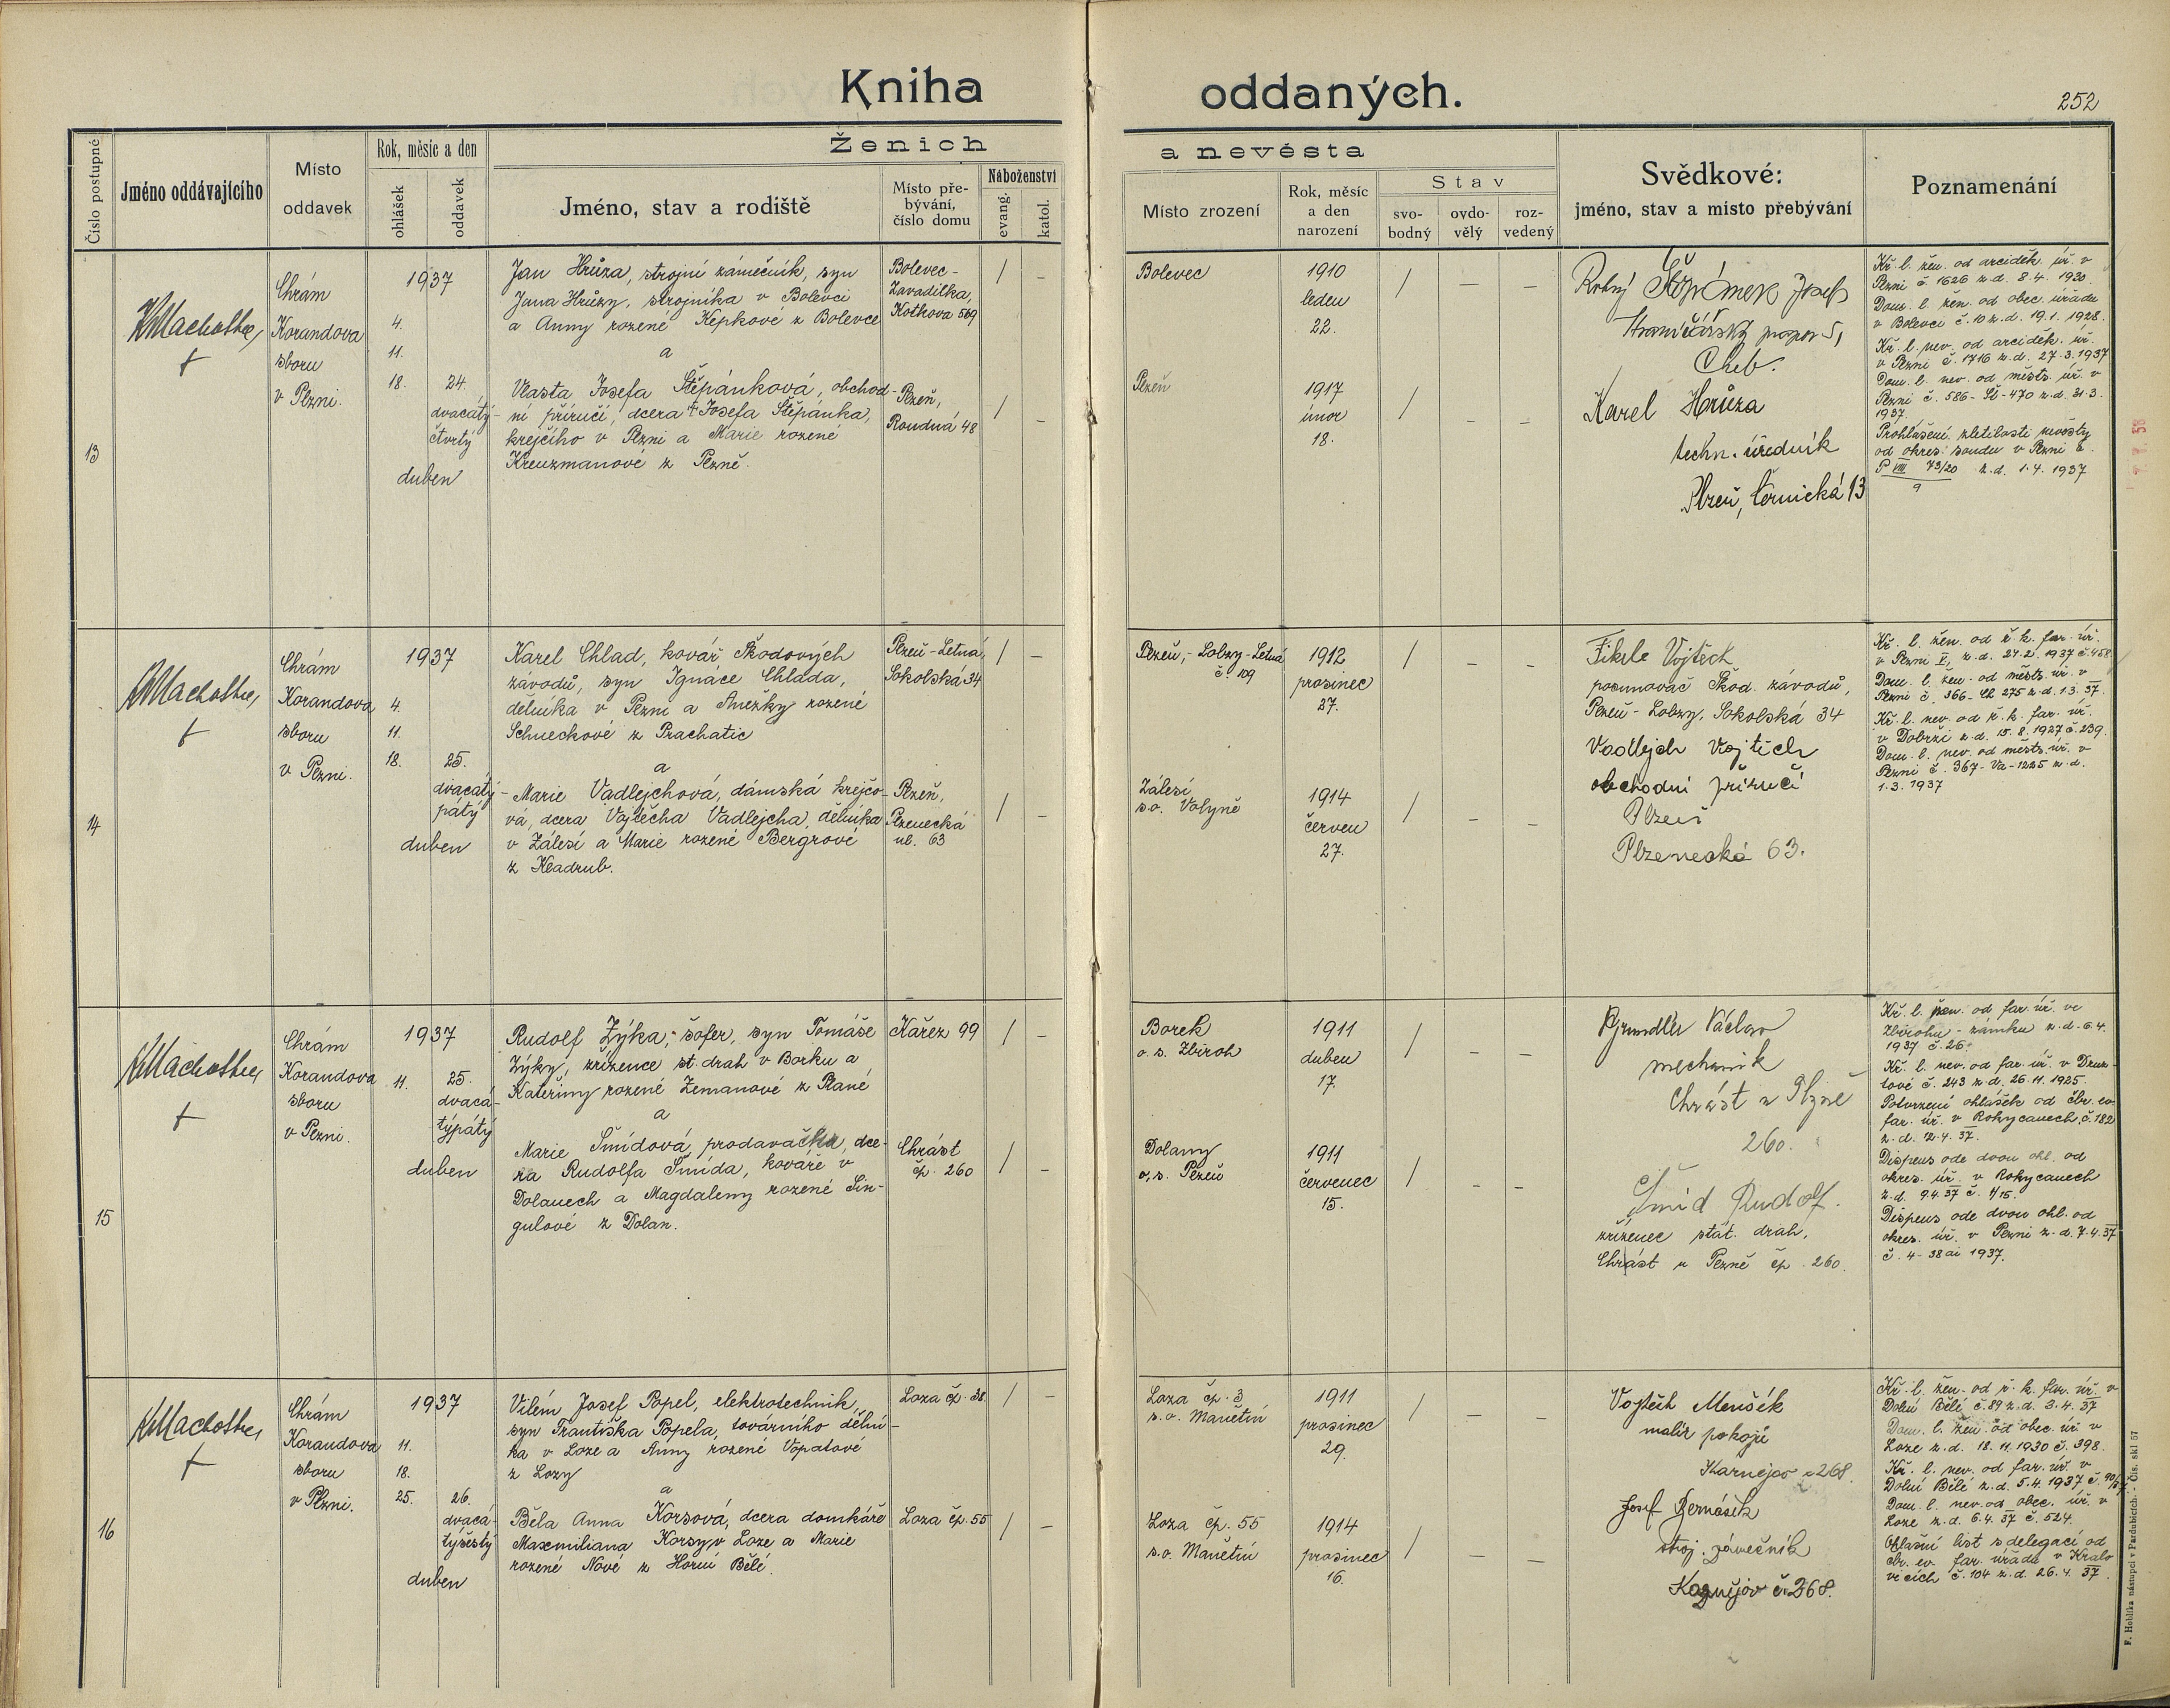 Kniha oddaných.
252
Číslo postupné
Jméno oddávajícího
Místo
oddavek
Rok, měsíc a den
ohlášek
oddavek
Ženich
a nevěsta
Jméno, stav a rodiště
Místo pře-
bývání,
číslo domu
Náboženství
evang.
katol.
Místo zrození
Rok, měsíc
a den
narození
Stav
svo-
bodný
ovdo-
vělý
roz-
vedený
Svědkové:
jméno, stav a místo přebývání
Poznamenání
13
Machotka
Chrám
Korandova
sboru
v Plzni.
1937
4.
11.
18. 24.
dvacátý-
čtvrtý
duben
Jan Hrůza, strojní zámečník, syn
Jana Hrůzy, strojníka v Bolevci
a Anny rozené Kepkové z Bolevce
a
Vlasta Josefa Štěpánková, obchod-
ní příručí, dcera † Josefa Štěpánka,
krejčího v Plzni a Marie rozené
Kreuzmanové z Plzně.
Bolevec-
Zavadilka,
Kotkova 569
Plzeň,
Roudná 48
/ -
/ -
Bolevec
Plzeň
1910
leden
22.
1917
únor
18.
/ - -
/ - -
Rotný Štěpánek Josef
Cheb.
Karel Hrůza
techn. úředník
Plzeň, Černická 13
Kř. l. žen. od arciděk. úř. v
Plzni č. 1626 z.d. 8.4. 1930.
Dom. l. žen. od obec. úřadu
v Bolevci č. 10 z.d. 19.1. 1928.
Kř. l. nev. od arciděk. úř.
v Plzni č. 1716 z.d. 27.3.1937
Dom. l. nev. od městs. úř. v
Plzni č. 586-Št-470 z.d. 31.3.
1937.
Prohlášení zletilosti nevěsty
od okres. soudu v Plzni č.
P VIII 73/20 z.d. 1.4. 1937
9
14
Machotka
Chrám
Korandova
sboru
v Plzni.
1937
4.
11.
18. 25.
dvacátý-
pátý
duben
Karel Chlad, kovář Škodových
závodů, syn Ignáce Chlada,
dělníka v Plzni a Anežky rozené
Schneckové z Prachatic
a
Marie Vadlejchová, dámská krejčo-
vá, dcera Vojtěcha Vadlejcha, dělníka
v Zálesí a Marie rozené Bergrové
z Kladrub.
Plzeň-Letná,
Sokolská 34
Plzeň,
Plzenecká
ul. 63
/ -
/ -
Plzeň,- Lobzy-Letná
č. 109
Zálesí
s.o. Volyně
1912
prosinec
27.
1914
červen
27.
/ - -
/ - -
Fikrle Vojtěch
posunovač Škod. závodů,
Plzeň-Lobzy, Sokolská 34
Vadlejch Vojtěch
obchodní příručí
Plzeň
Plzenecká 63.
Kř. l. žen. od ř. k. far. úř.
v Plzni V, z.d. 27.2. 1937 č.458
Dom. l. žen. od městs. úř. v
Plzni č. 366-Ch 275 z.d. 1.3. 37.
Kř. l. nev. od ř. k. far. úř.
v Dobrši z.d. 15.8.1927 č.239.
Dom. l. nev. od městs. úř. v
Plzni č. 367-Va-1225 z.d.
1.3. 1937
15
Machotka
Chrám
Korandova
sboru
v Plzni.
1937
11. 25.
dvacá-
týpátý
duben
Rudolf Zýka, šofer, syn Tomáše
Zýky, zřízence st. drah v Borku a
Kateřiny rozené Zemanové z Plané
a
Marie Šmídová, prodavačka, dce-
ra Rudolfa Šmída, kováře v
Dolanech a Magdaleny rozené Šin-
gulové z Dolan.
Kařez 99
Chrást
čp. 260
/ -
/ -
Borek
o.s. Zbiroh
Dolany
o.s. Plzeň
1911
duben
17.
1911
červenec
15.
/ - -
/ - -
Grundler Václav
mechanik
Chrást u Plzně
260.
Šmíd Rudolf.
zřízenec stát. drah,
Chrást u Plzně čp. 260.
Kř. l. žen. od far. úř. ve
Zbirohu - zámku z.d. 6.4.
1937 č. 26.
Kř. l. nev. od far. úř. v Druz-
tové č. 243 z.d. 26.11. 1925.
Potvrzení ohlášek od čbr. ev.
far. úř. v Rokycanech, č.182
z.d. 12.4. 37.
Dispens ode dvou ohl. od
okres. úř. v Rokycanech
z.d. 9.4.37 č. 1/15.
Dispens ode dvou ohl. od
okres. úř. v Plzni z.d. 7.4.37
č. 4-38 ai 1937.
16
Machotka
Chrám
Korandova
sboru
v Plzni.
1937
11.
18.
25. 26.
dvacá-
týšestý
duben
Vilém Josef Popel, elektrotechnik,
syn Františka Popela, továrního dělní-
ka v Loze a Anny rozené Vopatové
z Lozy
a
Běla Anna Korsová, dcera domkáře
Maxmiliana Korsy v Loze a Marie
rozené Nové z Horní Bělé.
Loza čp. 38
Loza čp. 55
/ -
/ -
Loza čp. 3
s.o. Manětín
Loza čp. 55
s.o. Manětín
1911
prosinec
29.
1914
prosinec
16.
/ - -
/ - -
Vojtěch Menšík
malíř pokojů
Kaznějov č 268.
Josef Bernášek
stroj. zámečník
Kaznějov č. 268.
Kř. l. žen. od ř. k. far. úř. v
Dolní Bělé č.89 z.d. 3.4. 37
Dom. l. žen. od obec. úř. v
Loze z.d. 18.11.1930 č. 398.
Kř. l. nev. od far. úř. v
Dolní Bělé z.d. 5.4.1937 č. 90/37
Dom. l. nev. od obec. úř. v
Loze z.d. 6.4. 37 č. 524.
Ohlašní list s delegací od
čbr. ev. far. úřadu v Kralo-
vicích č. 104 z.d. 26.4. 37.
F. Hoblíka nástupci v Pardubicích. - Čís. skl 57